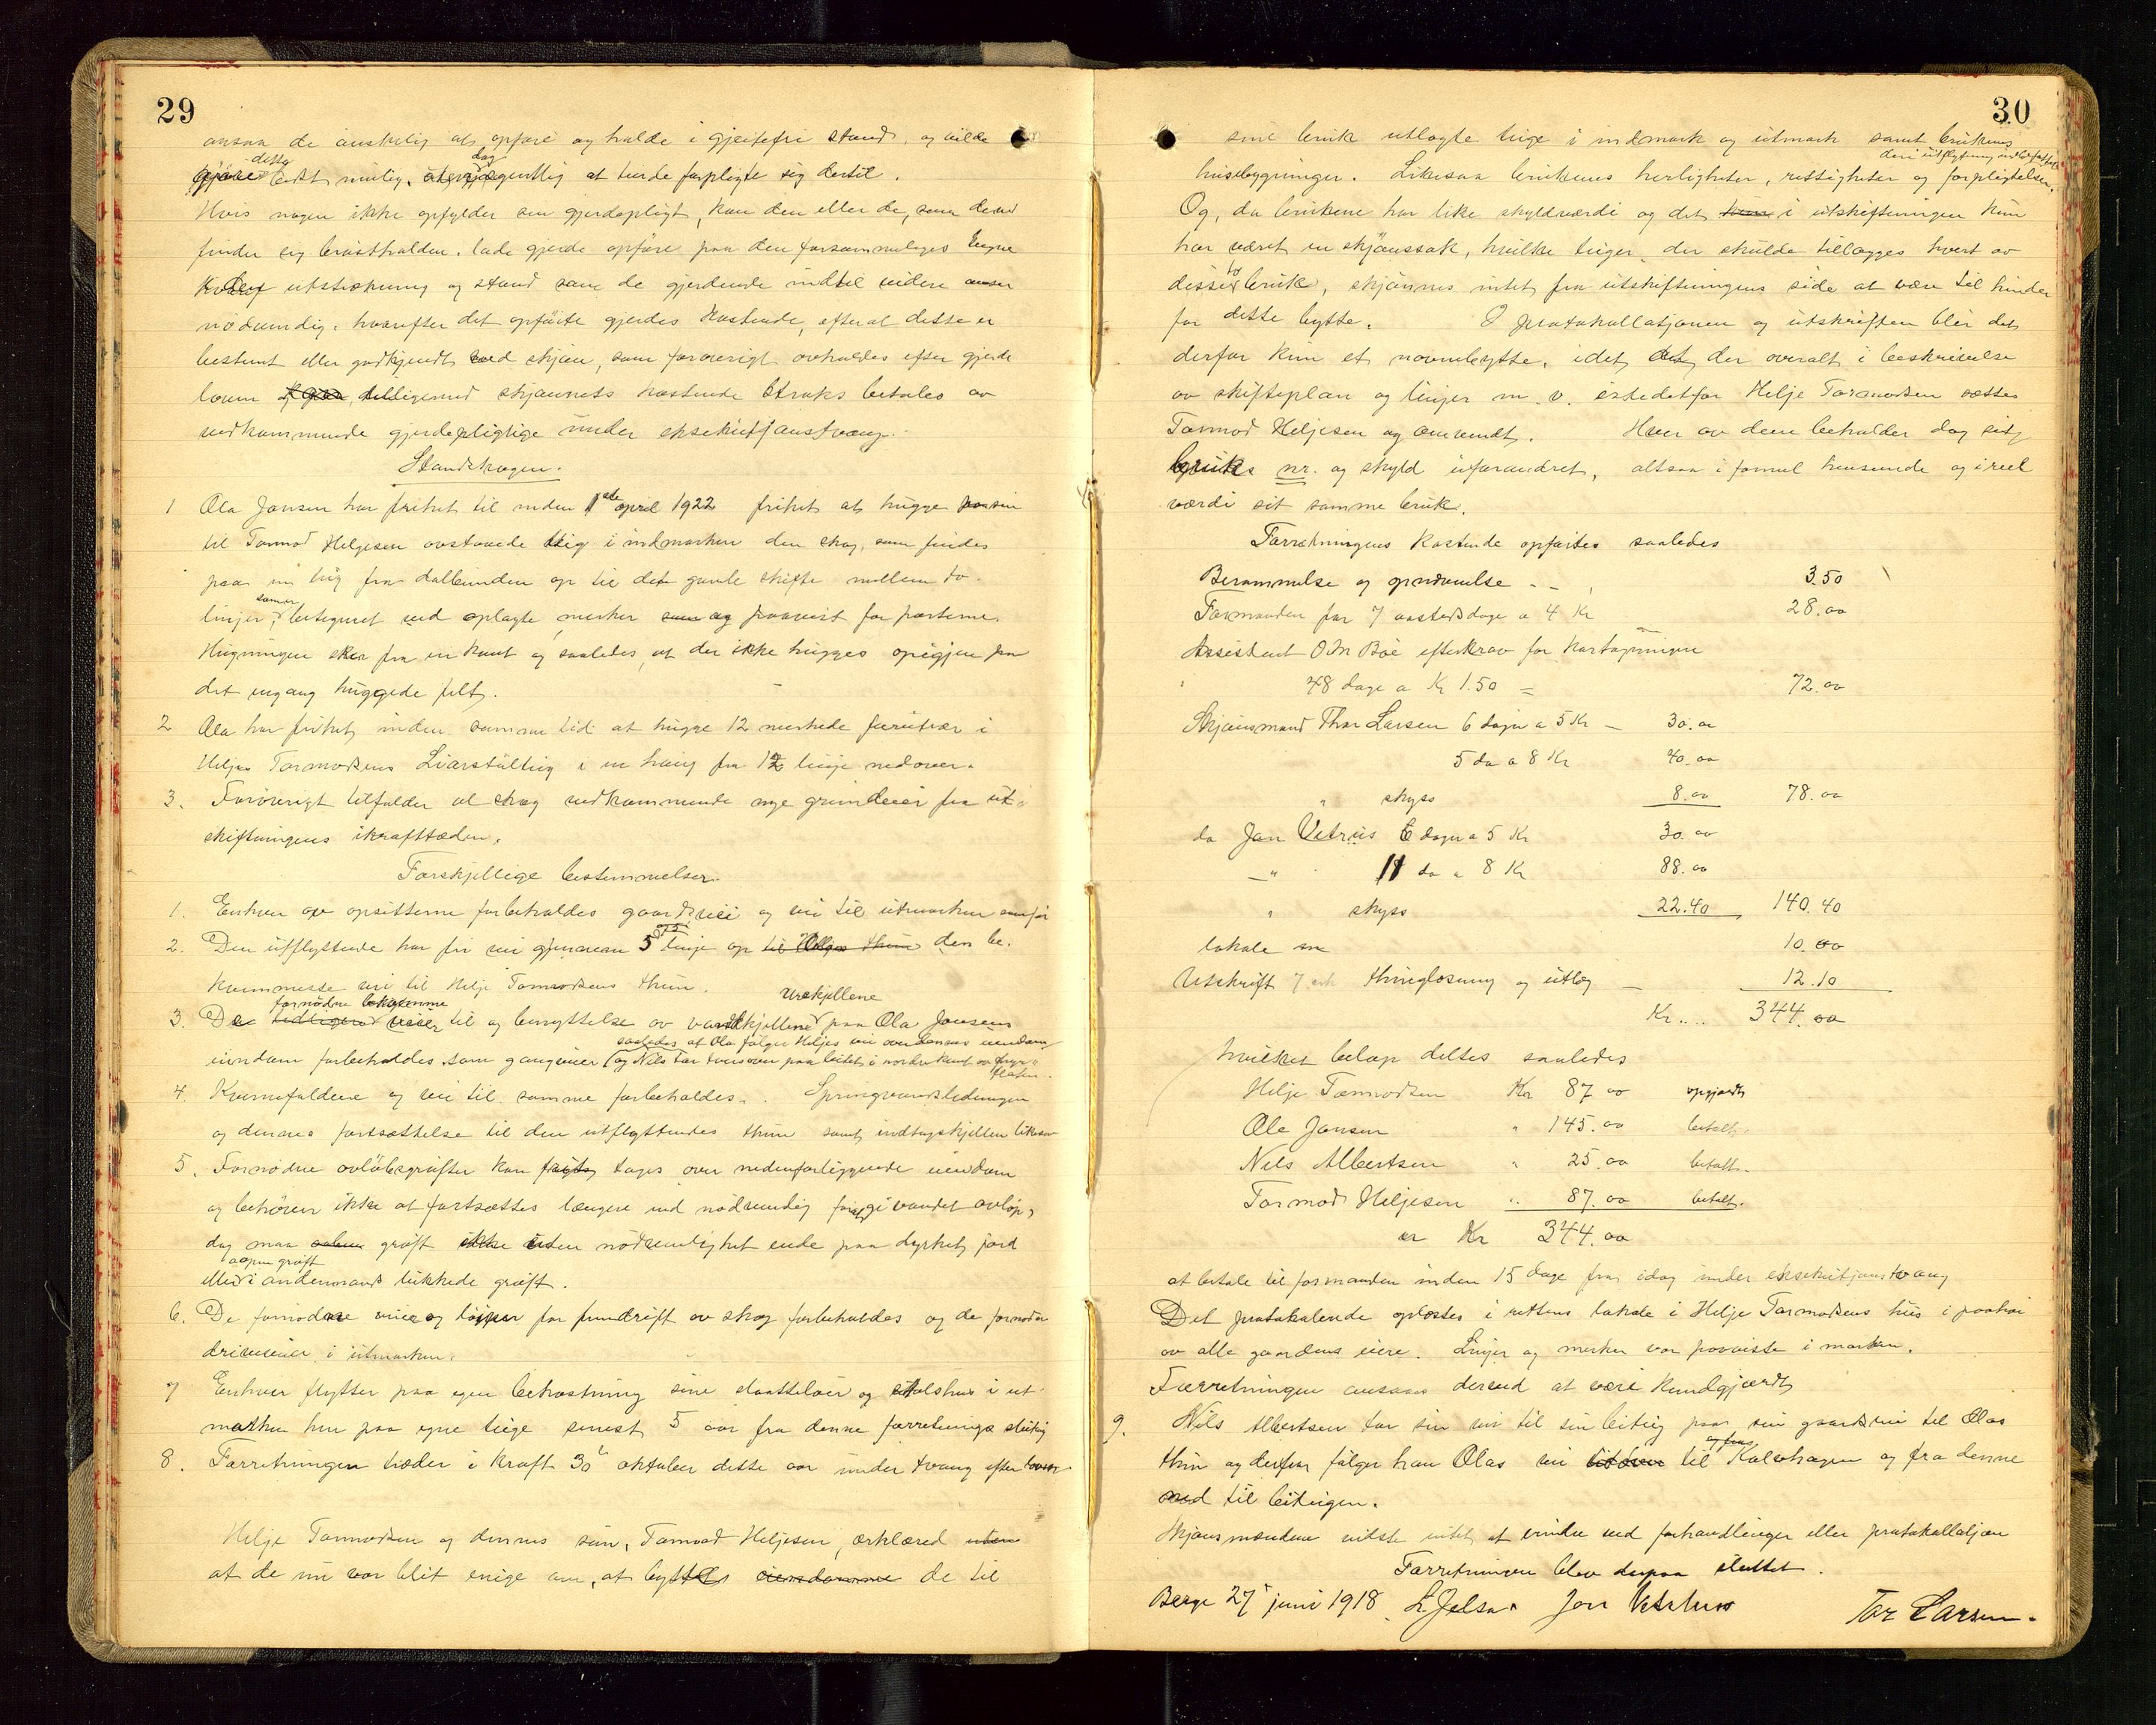 29
ansaa de önskelig at opföre og holde i gjeitefri stand, og vilde
gjöre dette mulig, dog at turde forpligte sig dertil.
Hvis nogen ikke opfylder sin gjerdepligt, kan den eller de, som derved
finder sig brøstholden, lade gjerde opföre paa den forsømmeliges regne
utstrækning og stand som de gjerdende indtil videre anser
nödvendig, hvorefter det opförte gjerdes kostende, efterat dette er
bestemt eller godkjendt ved skjøn, som forøvrigt avholdes efter gjerde
loven tilligemed skjønnets kostende straks betales av
vedkommende gjerdepligtige under eksekutjonstvang.
Standskogen.
1 Ola Jonsen har frihet til inden 1ste april 1922 frihet at hugge paa sin
til Tormod Heljesen avstaaede teig i indmarken den skog, som findes
paa en teig fra dalbunden op til det gamle skifte mellem to
linjer, som er betegnet ved oplagte merker som og paavist for parterne.
Hugningen sker fra en kant og saaledes, at der ikke hugges opigjen paa
det engang huggede felt.
2 Ola har frihet inden samme tid at hugge 12 merkede furutrær i
Helje Tormodsens Liarstülteig i en haug fra 12 linje nedover.
3. Forøvrigt tilfalder al skog vedkommende nye grundeier fra ut-
skiftningens ikrafttræden.
Forskjellige bestemmelser.
1. Enhver av opsitterne forbeholdes gaardsvei og vei til utmarken som før
2. Den utflyttende har fri vei gjennem 5 linje op til Heljes thun den be-
kvemmeste vei til Helje Tormodsens thun.
3. De tidligere fornødne bekvemme veier til og benyttelse av vandkjellene Urekjellene paa Ola Jonsens
eiendom forbeholdes som gangveier (saaledes at Ola følger Heljes vei over dennes eiendom og Nils tar tversover paa beitet i nordre kant av myr-
flaten.
4. Kvernfaldene og vei til samme forbeholdes. Springvandsledningen
og dennes fortsættelse til den utflyttendes thun samt indtagskjellen likesaa
5. Fornødne avløbsgrøfter kan frit tages over nedenforliggende eiendom
og behøver ikke at fortsættes længere end nødvendig for at gi vandet avløp,
dog maa aapen grøft ikke uten nødvendighet ende paa dyrket jord
eller i andenmands lukkede grøft.
6. De fornødne veier og løiper for fremdrift av skog forbeholdes og de fornødne
driveveier i utmarken.
7 Enhver flytter paa egen bekostning sine slaatteløer og stølshus i ut-
marken hen paa egne teige senest 5 aar fra denne forretnings slutning
8. Forretningen træder i kraft 30 oktober dette aar under tvang efter loven.
Helje Tormodsen og dennes søn, Tormod Heljesen, erklæred uten
at de nu var blit enige om, at byttes eiendomme de til
30
sine bruk utlagte teige i indmark og utmark samt brukenes
husebygninger. Likesaa brukenes herligheter, rettigheter og forpligtelser, deri utflytning indbefattet.
Og, da brukene har like skyldværdi og det i utskiftningen kun
har været en skjønssak, hvilke teiger der skulde tillægges hvert av
disse to bruk, skjønnes intet fra utskiftningens side at være til hinder
for dette bytte. I protokollasjonen og utskriften blir det
derfor kun et navnebytte, idet der overalt i beskrivelse
av skifteplan og linjer m. v. istedetfor Helje Tormodsen sættes
Tormod Heljesen og omvendt. Hver av dem beholder dog sit
bruks nr. og skyld uforandret, altsaa i formel henseende og i reel
værdi sit samme bruk.
Forretningens kostende opførtes saaledes
Berammelse og grndavnelse 3.50
Formanden for 7 aastedsdage a 4 Kr 28.00
Assistent O M Bøe efterkrav for kartopningen
48 dage a Kr 1.50 = 72.00
Skjønsmand Thor Larsen 6 dage a 5 Kr — 30.00
5 do a 8 Kr 40.00
" skyss 8.00 78.00
do Jon Vetrus 6 dager a 5 Kr 30.00
—"— 11 do a 8 Kr 88.00
" skyss 22.40 140.40
lokale m 10.00
Utskrift 7 ark thinglæsning og utlæg — 12.10
Kr.... 344.00
hvilket beløp deltes saaledes
Helje Tormodsen Kr 87.00 opgjordt
Ole Jonsen " 145.00 betalt.
Nils Albertsen " 25.00 betalt.
Tormod Heljesen " 87.00 betalt.
er Kr 344.00
at betale til formanden inden 15 dage fra idag under eksekutjonstvang
Det protokolerende oplæstes i rettens lokale i Helje Tormodsens hus i paahør
av alle gaardens eiere. Linjer og merker var paavisste i marken.
Forretningen ansaaes derved at være kundgjordt
9. Nils Albertsen tar sin vei til sin beiteig paa sin gaardsvei til Olas
thun og derfra følger han Olas vei til og fra Kalvhagen og fra denne
ned til beiteigen.
Skjønsmændene vidste intet at erindre ved forhandlinger eller protokollatjon
Forretningen blev derpaa sluttet.
Berge 27 juni 1918 L. Jelsa Jon Vetrhus Tor Larsen.